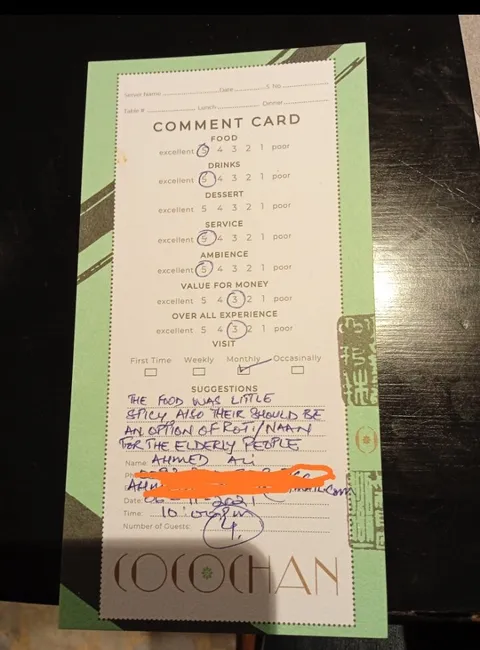 Server Name Date S. No.
Table # Lunch Dinner
COMMENT CARD
FOOD
excellent 5 4 3 2 1 poor
DRINKS
excellent 5 4 3 2 1 poor
DESSERT
excellent 5 4 3 2 1 poor
SERVICE
excellent 5 4 3 2 1 poor
AMBIENCE
excellent 5 4 3 2 1 poor
VALUE FOR MONEY
excellent 5 4 3 2 1 poor
OVER ALL EXPERIENCE
excellent 5 4 3 2 1 poor
VISIT
First Time Weekly Monthly Occasinally
SUGGESTIONS
THE FOOD WAS LITTLE
SPICY ALSO THEIR SHOULD BE
AN OPTION OF ROTI/NAAN
FOR THE ELDERLY PEOPLE
Name: AHMED ALI
Date: 2021
Time: 10:00pm
Number of Guests: 4
COCOCHAN